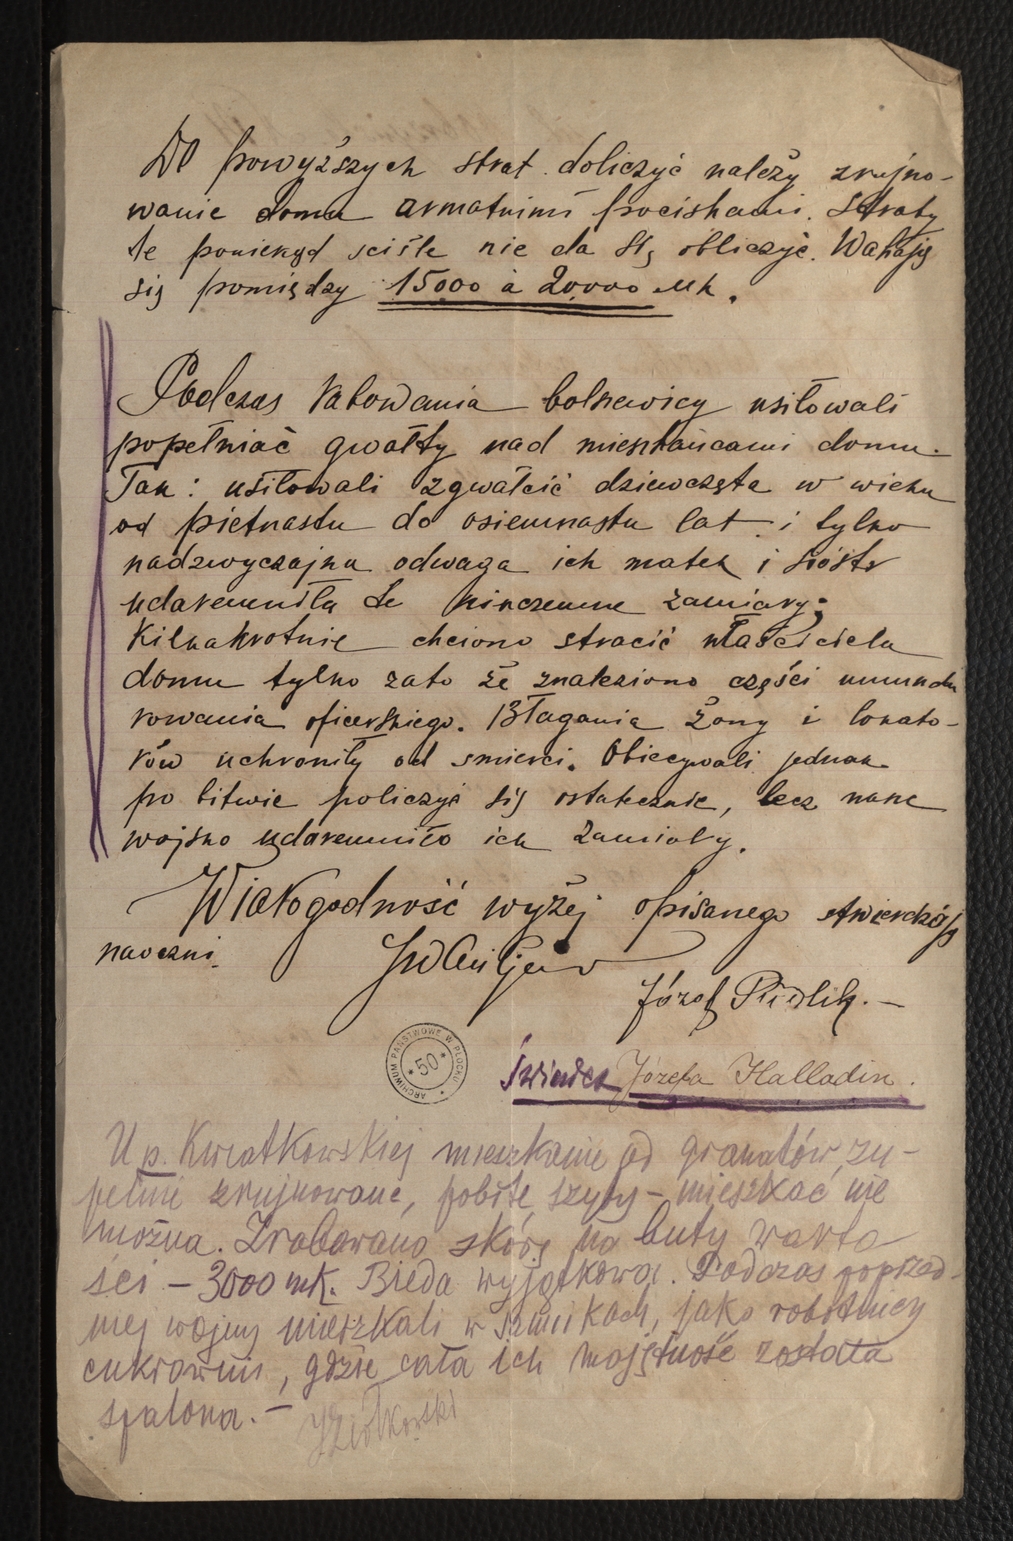 Do powyższych strat doliczyć należy zrujno-
wanie domu armatnimi pociskami. Straty
te poniekąd ściśle nie da się obliczyć. Wahają
się pomiędzy 15000 à 20.000 Mk.
Podczas rabowania bolszewicy usiłowali
popełniać gwałty nad mieszkańcami domu.
Tak: usiłowali zgwałcić dziewczęta w wieku
od piętnastu do osiemnastu lat i tylko
nadzwyczajna odwaga ich matek i sióstr
udaremniła te nikczemne zamiary;
Kilkakrotnie chciono stracić właściciela
domu tylko zato że znaleziono części umundu
rowania oficerskiego. Błagania żony i lokato-
rów uchroniły od smierci. Obiecywali jednak
po bitwie policzyć się ostatecznie, lecz nasze
wojsko udaremniło ich zamiary.
Wiarogodność wyżej opisanego stwierdzają
naoczni
Józef Pudlik. —
ARCHIWUM PAŃSTWOWE W PŁOCKU
50
Świadek Józefa Halladin.
U p. Kwiatkowskiej mieszkanie od granatów, zu-
pełnie zrujnowane, pobite szyby – mieszkać nie
można. Zrabowano skórę na buty warto
ści – 3000 mk. Bieda wyjątkowa. Podczas poprzed-
niej wojny mieszkali w jako robotnicy
cukrowni, gdzie cała ich majętność została
spalona. –
JZiółkowski